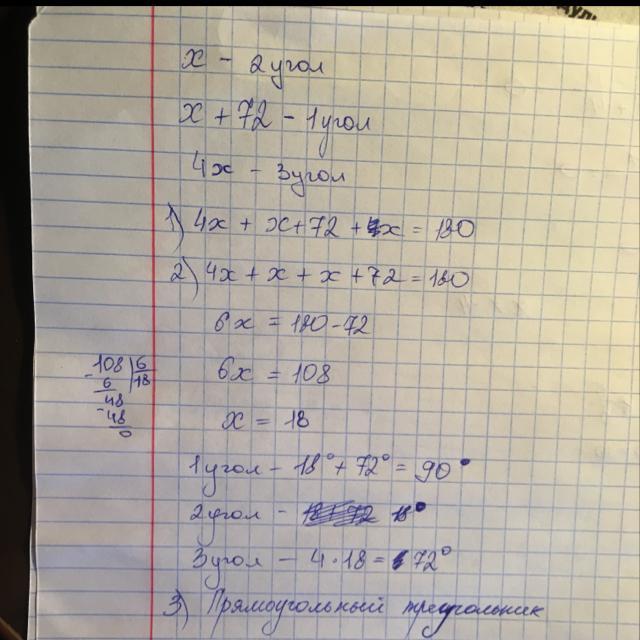 x - 2угол
x + 72 - 1угол
4x - 3угол
1) 4x + x + 72 + x = 180
2) 4x + x + x + 72 = 180
6x = 180 - 72
6x = 108
x = 18
108 | 6
- 6 | 18
48
- 48
0
1угол - 18° + 72° = 90°
2угол - 18°
3угол - 4 · 18 = 72°
3) Прямоугольный треугольник